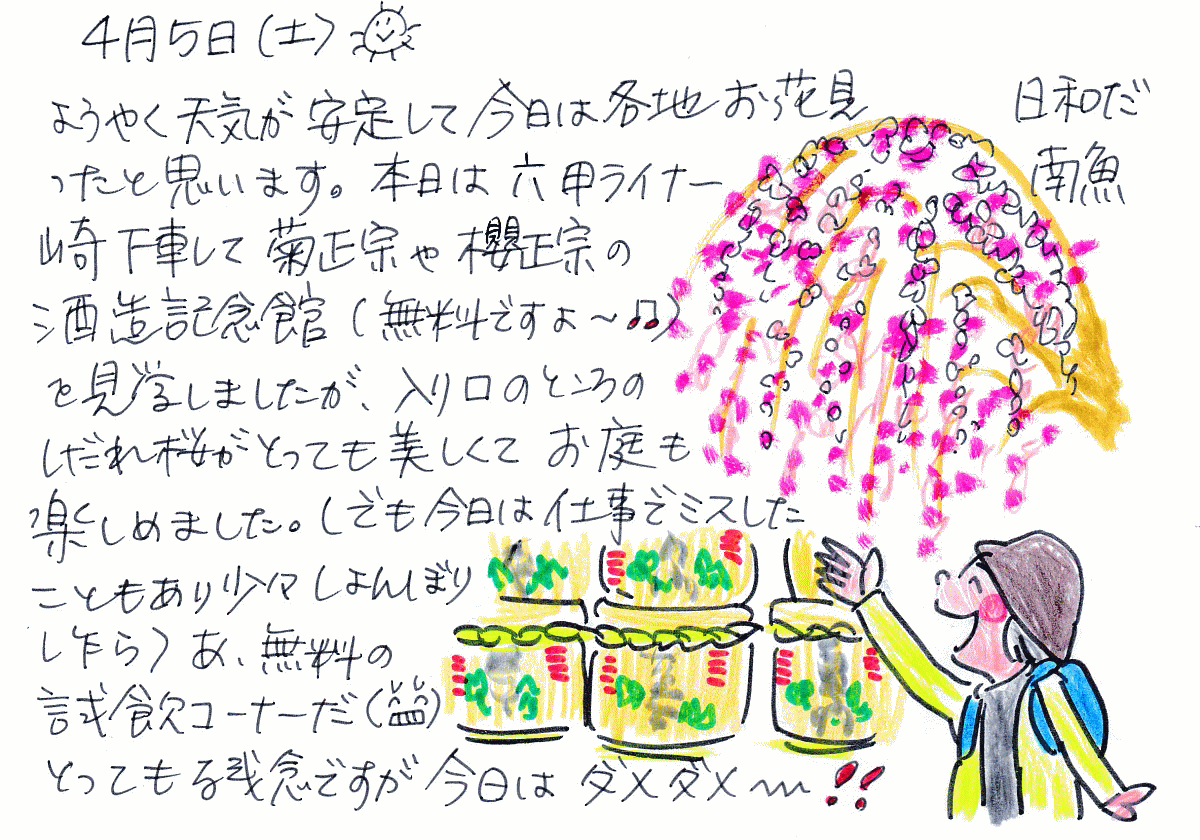 4月5日(土)
ようやく天気が安定して今日は各地お花見日和だ
ったと思います。本日は六甲ライナー南魚
崎下車して菊正宗や櫻正宗の
酒造記念館(無料ですよ〜♫)
を見学しましたが、入り口のところの
しだれ桜がとっても美しくてお庭も
楽しめました。(でも今日は仕事でミスした
こともあり少々しょんぼり
し乍ら)あ、無料の
試飲コーナーだ
とっても残念ですが今日はダメダメ〜!!